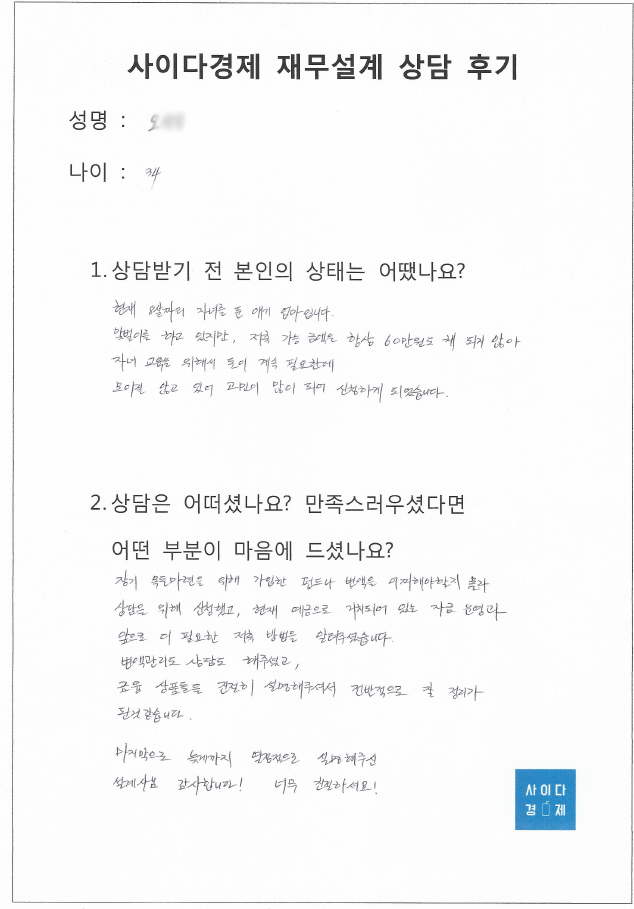 사이다경제 재무설계 상담 후기
성명 : 오
나이 : 34
1. 상담받기 전 본인의 상태는 어땠나요?
현재 8살짜리 자녀를 둔 애기 엄마입니다.
맞벌이를 하고 있지만, 저축 가능 금액은 항상 60만원도 채 되지 않아
자녀 교육을 위해서 돈이 계속 필요한데
모이질 않고 있어 고민이 많이 되어 신청하게 되었습니다.
2. 상담은 어떠셨나요? 만족스러우셨다면
어떤 부분이 마음에 드셨나요?
장기 목돈마련을 위해 가입한 펀드나 변액을 어찌해야할지 몰라
상담을 위해 신청했고, 현재 예금으로 거치되어 있는 자금 운영과
앞으로 더 필요한 저축 방법을 알려주셨습니다.
변액관리도 상담도 해주셨고,
금융 상품들을 친절히 설명해주셔서 전반적으로 잘 정리가
된것 같습니다.
마지막으로 늦게까지 열정적으로 설명해주신
설계사분 감사합니다! 너무 친절하셔요!
사이다
경제